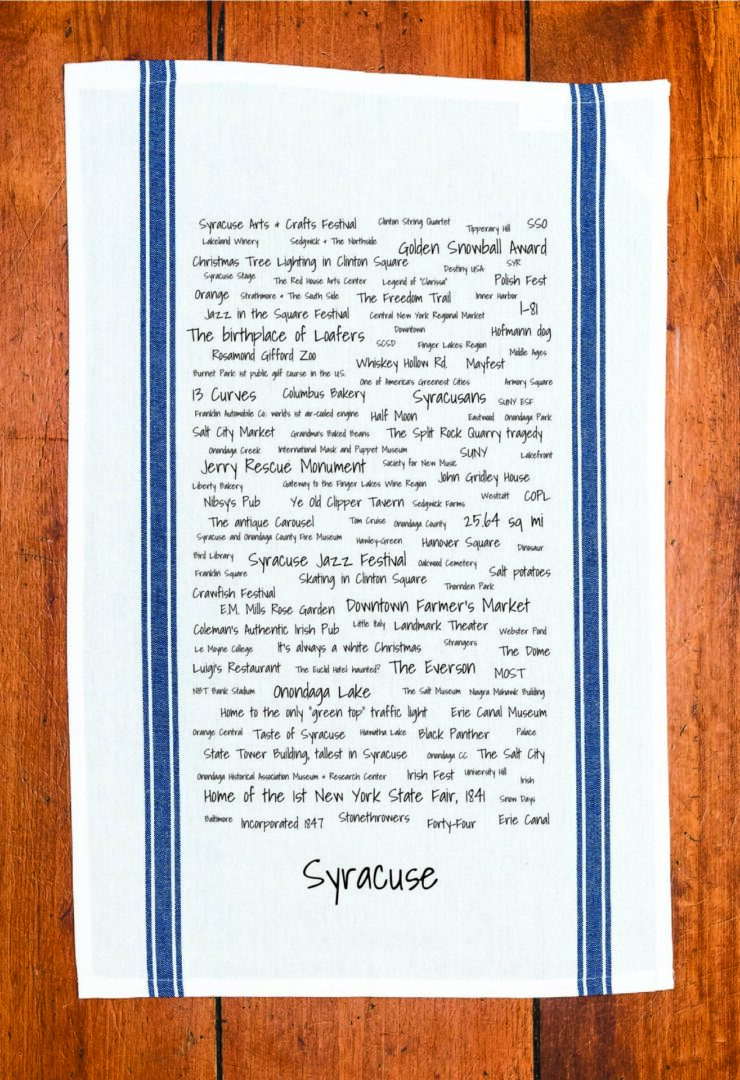 Syracuse Arts + Crafts Festival Clinton String Quartet Tipperary Hill SSO
Lakeland Winery Sedgwick + The Northside Golden Snowball Award
Christmas Tree Lighting in Clinton Square Destiny USA SYR
Syracuse Stage The Red House Arts Center Legend of "Clarissa" Polish Fest
Orange Strathmore + The South Side The Freedom Trail Inner Harbor
Jazz in the Square Festival Central New York Regional Market I-81
The birthplace of Loafers Downtown Hofmann dog
SCSD Finger Lakes Region
Rosamond Gifford Zoo Whiskey Hollow Rd. Mayfest Middle Ages
Burnet Park 1st public golf course in the U.S. One of America's Greenest Cities Armory Square
13 Curves Columbus Bakery Syracusans SUNY ESF
Franklin Automobile Co: world's 1st air-cooled engine Half Moon Eastwood Onondaga Park
Salt City Market Grandma's Baked Beans The Split Rock Quarry tragedy
Onondaga Creek International Mask and Puppet Museum SUNY Lakefront
Jerry Rescue Monument Society for New Music John Gridley House
Liberty Bakery Gateway to the Finger Lakes Wine Region
Nibsy's Pub Ye Old Clipper Tavern Sedgwick Farms Westcott COPL
The antique Carousel Tom Cruise Onondaga County 25.64 sq mi
Syracuse and Onondaga County Fire Museum Hawley-Green Hanover Square Dinosaur
Bird Library Syracuse Jazz Festival Oakwood Cemetery
Franklin Square Skating in Clinton Square Salt potatoes
Crawfish Festival Thornden Park
E.M. Mills Rose Garden Downtown Farmer's Market
Coleman's Authentic Irish Pub Little Italy Landmark Theater Webster Pond
Le Moyne College It's always a white Christmas Strangers The Dome
Luigi's Restaurant The Euclid Hotel haunted? The Everson MOST
NBT Bank Stadium Onondaga Lake The Salt Museum Niagra Mohawk Building
Home to the only "green top" traffic light Erie Canal Museum
Orange Central Taste of Syracuse Hiawatha Lake Black Panther Palace
State Tower Building, tallest in Syracuse Onondaga CC The Salt City
Onondaga Historical Association Museum + Research Center Irish Fest University Hill Irish
Home of the 1st New York State Fair, 1841 Snow Days
Baltimore Incorporated 1847 Stonethrowers Forty-Four Erie Canal
Syracuse